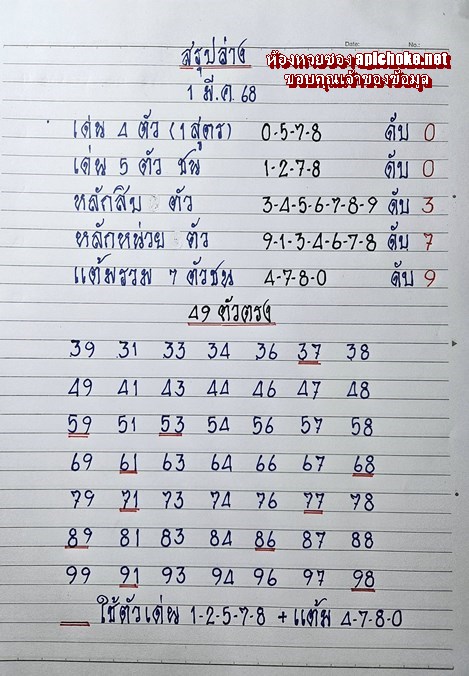 Date: No.:
สรุปล่าง
ห้องหวยซอง apichoke.net
ขอบคุณเจ้าของข้อมูล
1 มี.ค. 68
เด่น 4 ตัว (1 สูตร) 0-5-7-8 ดับ 0
เด่น 5 ตัว ชน 1-2-7-8 ดับ 0
หลักสิบ ตัว 3-4-5-6-7-8-9 ดับ 3
หลักหน่วย ตัว 9-1-3-4-6-7-8 ดับ 7
แต้มรวม 7 ตัวชน 4-7-8-0 ดับ 9
49 ตัวตรง
39 31 33 34 36 37 38
49 41 43 44 46 47 48
59 51 53 54 56 57 58
69 61 63 64 66 67 68
79 71 73 74 76 77 78
89 81 83 84 86 87 88
99 91 93 94 96 97 98
ใช้ตัวเด่น 1-2-5-7-8 + แต้ม 4-7-8-0